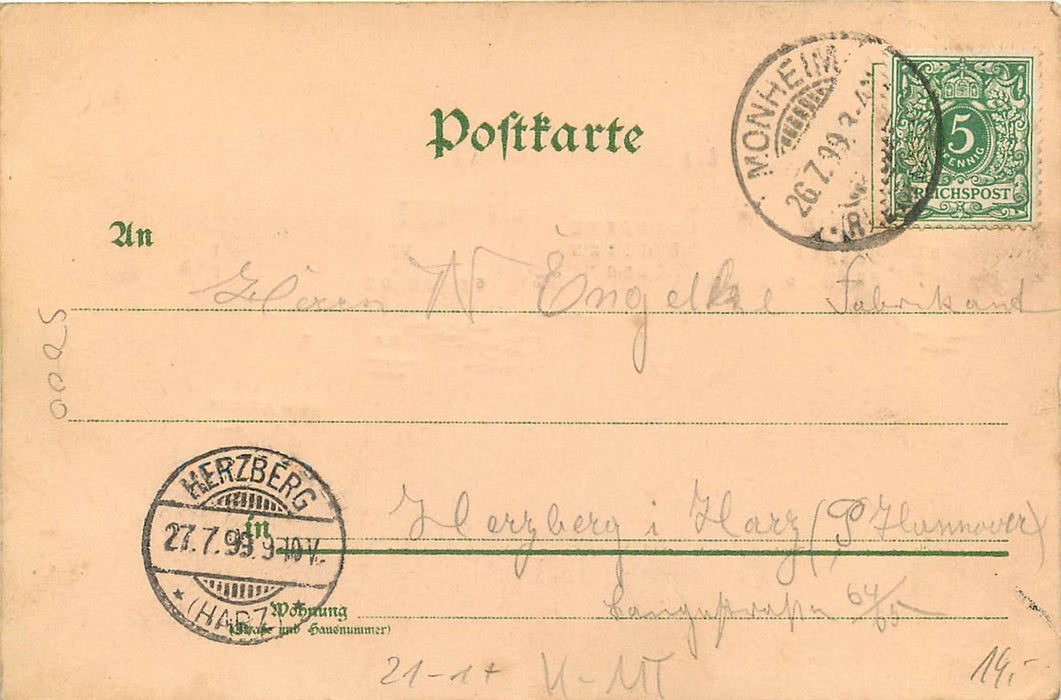 Postkarte
MONHEIM
26.7.99 8-
5
PFENNIG
REICHSPOST
An
Herrn W Engelke Fabrikant
5200
HERZBERG
27.7.99.9-10V.
(HARZ)
in
Herzberg i Harz (P Hannover)
Wohnung
(Straße und Hausnummer)
Langestraße 64/65
21-1+
14.-